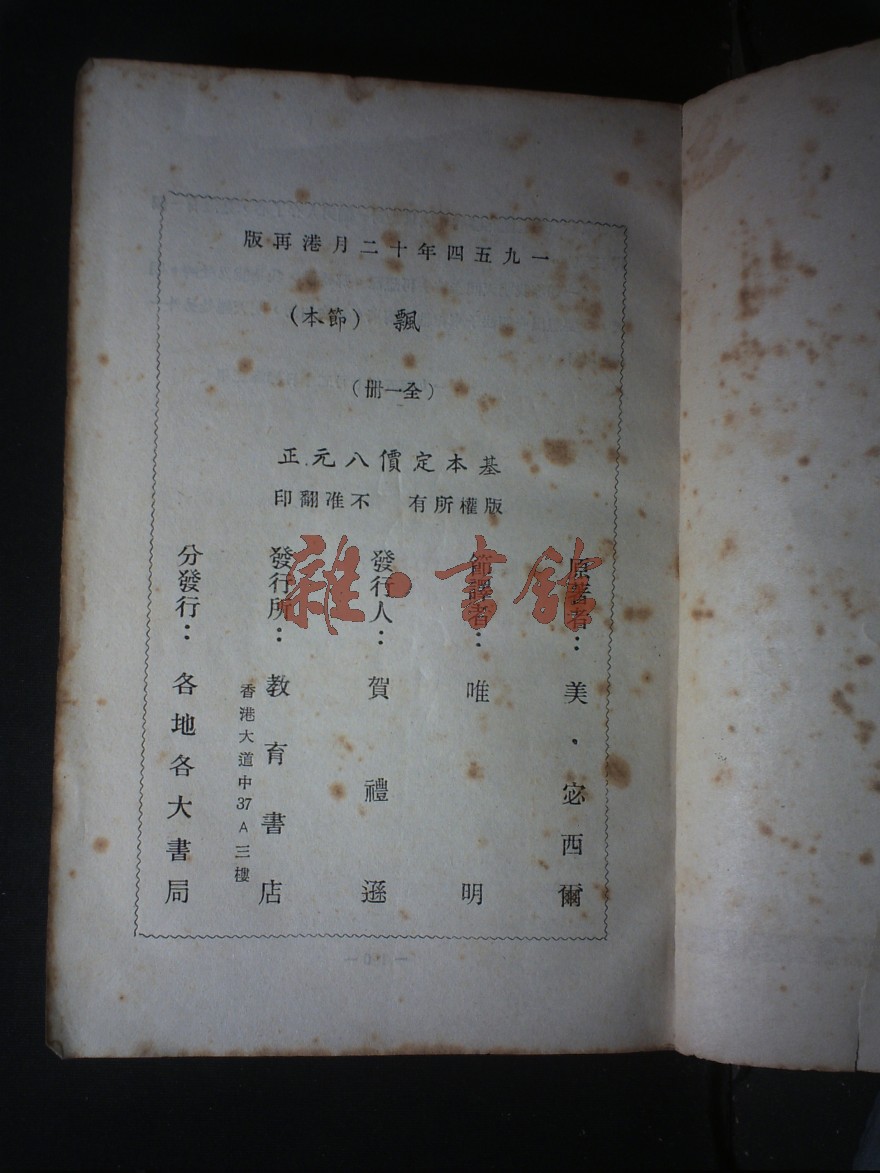 一九五四年十二月港再版
飄（節本）
（全一冊）
基本定價八元正
版權所有 不准翻印
原著者：美·宓西爾
節譯者：唯明
發行人：賀禮遜
發行所：教育書店
香港大道中37A三樓
分發行：各地各大書局
雜·書館